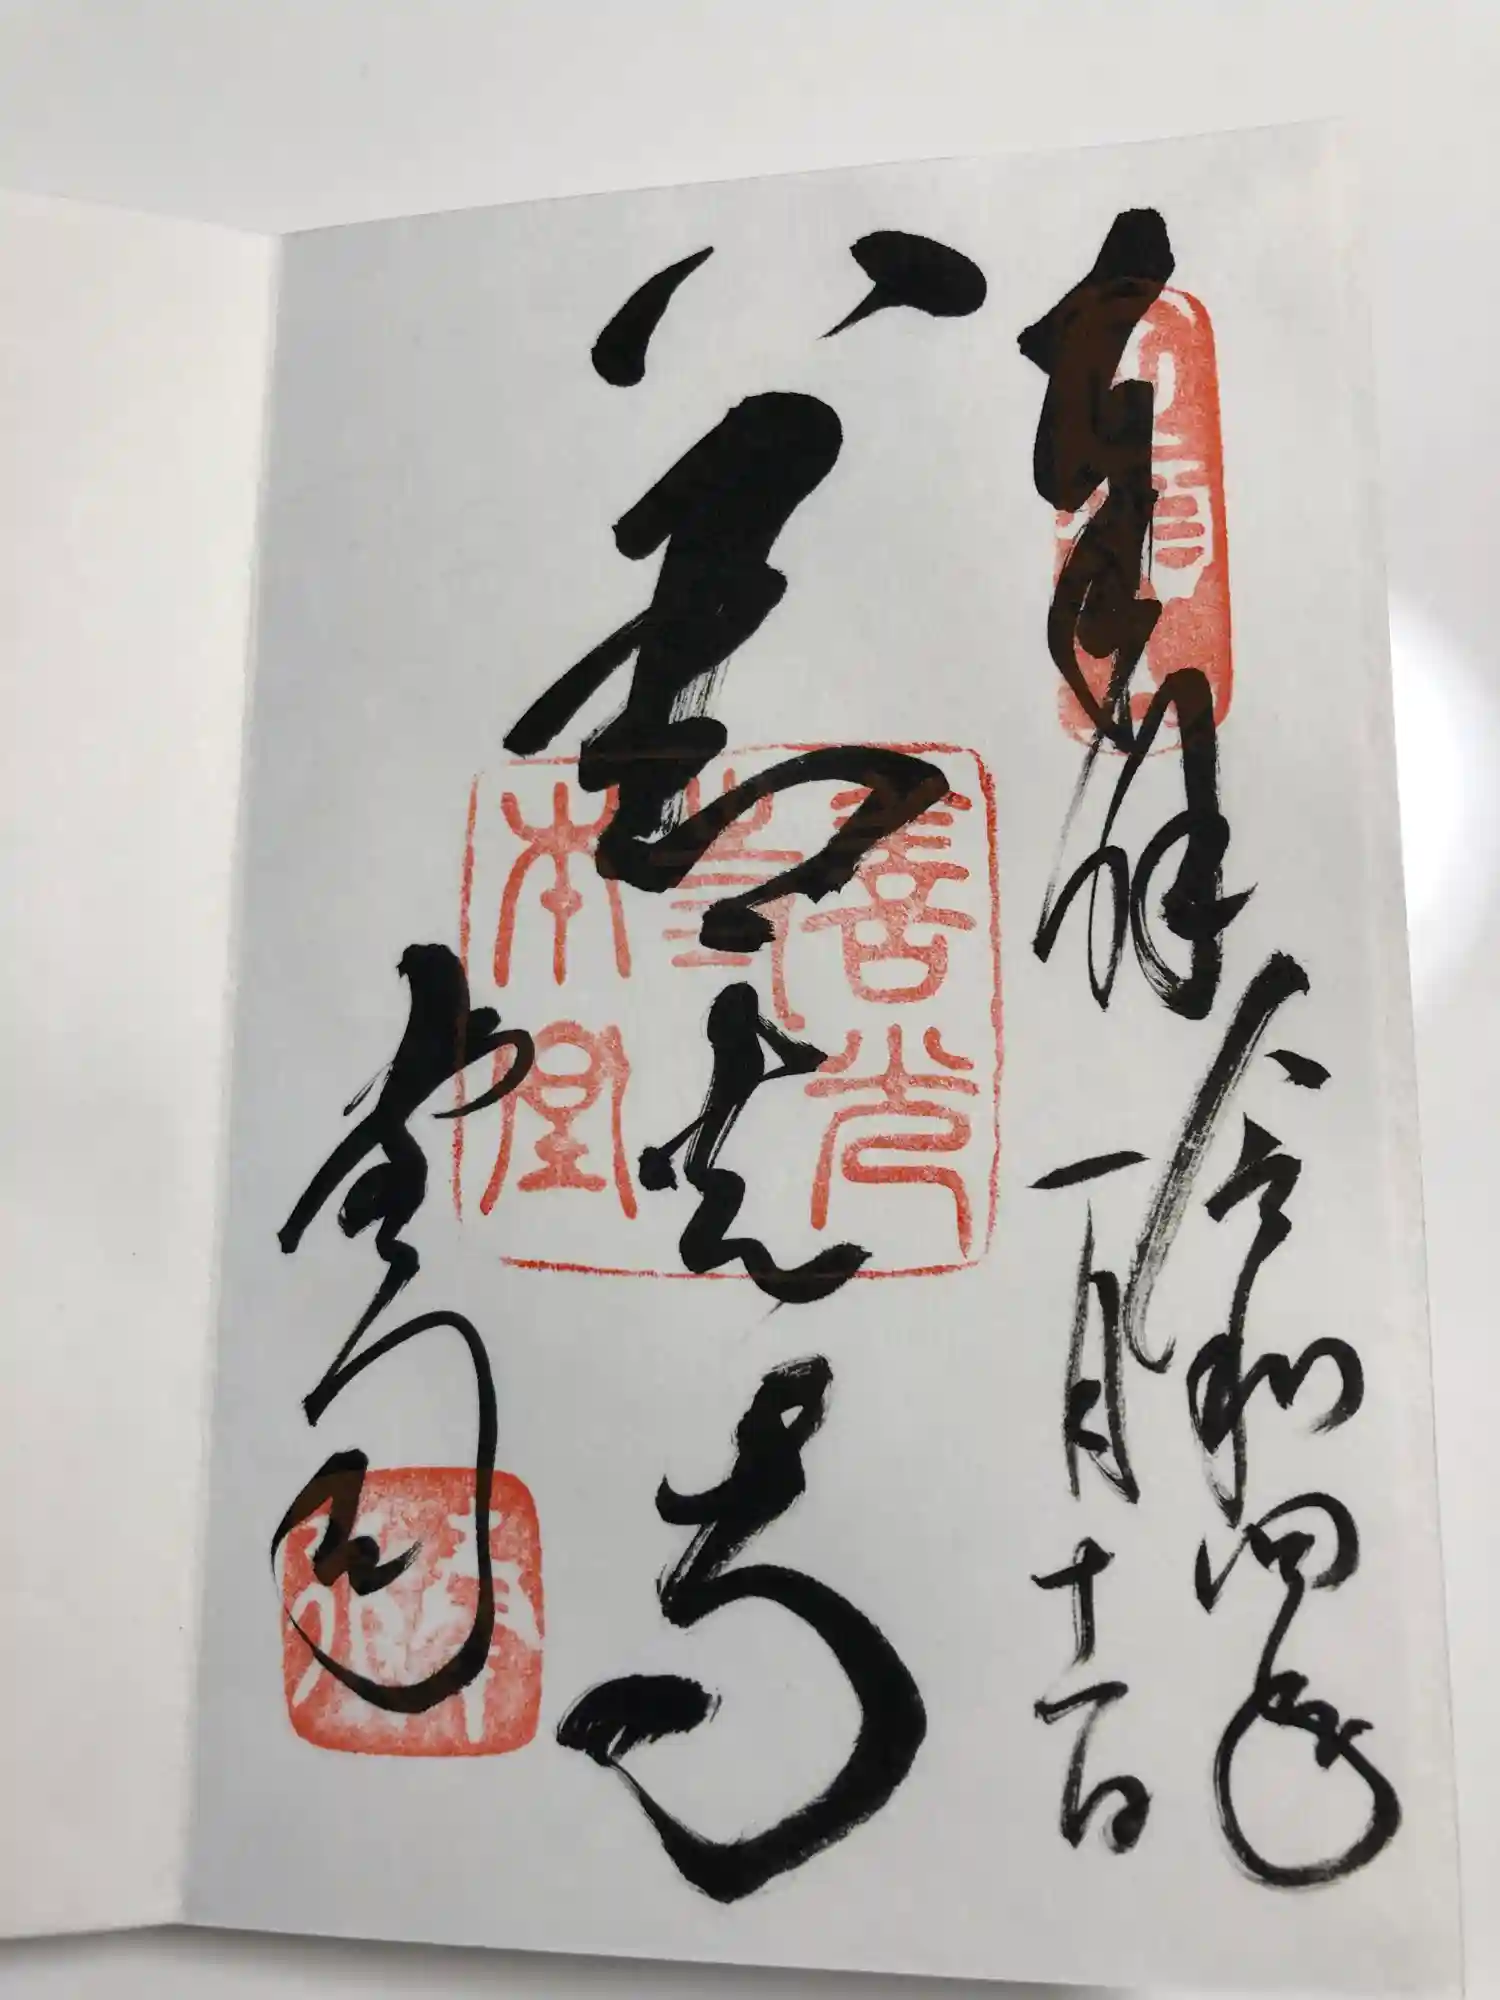 奉拝
令和四年
一月十一日
善光寺
堂司
善光